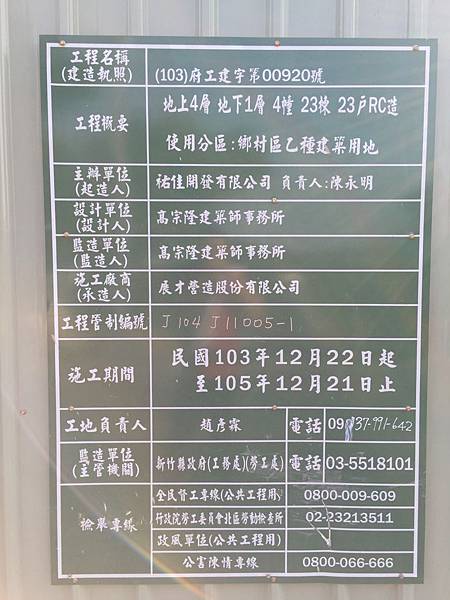 工程名稱
(建造執照)
(103)府工建字第00920號
工程概要
地上4層 地下1層 4幢 23棟 23戶RC造
使用分區:鄉村區乙種建築用地
主辦單位
(起造人)
祐佳開發有限公司 負責人:陳永明
設計單位
(設計人)
高宗隆建築師事務所
監造單位
(監造人)
高宗隆建築師事務所
施工廠商
(承造人)
展才營造股份有限公司
工程管制編號
J104J11005-1
施工期間
民國103年12月22日起
至105年12月21日止
工地負責人
趙彥霖
電話
0937-991-642
監造單位
(主管機關)
新竹縣政府(工務處)(勞工處)
電話
03-5518101
檢舉專線
全民督工專線(公共工程用)
0800-009-609
行政院勞工委員會北區勞動檢查所
02-23213511
政風單位(公共工程用)
公害陳情專線
0800-066-666